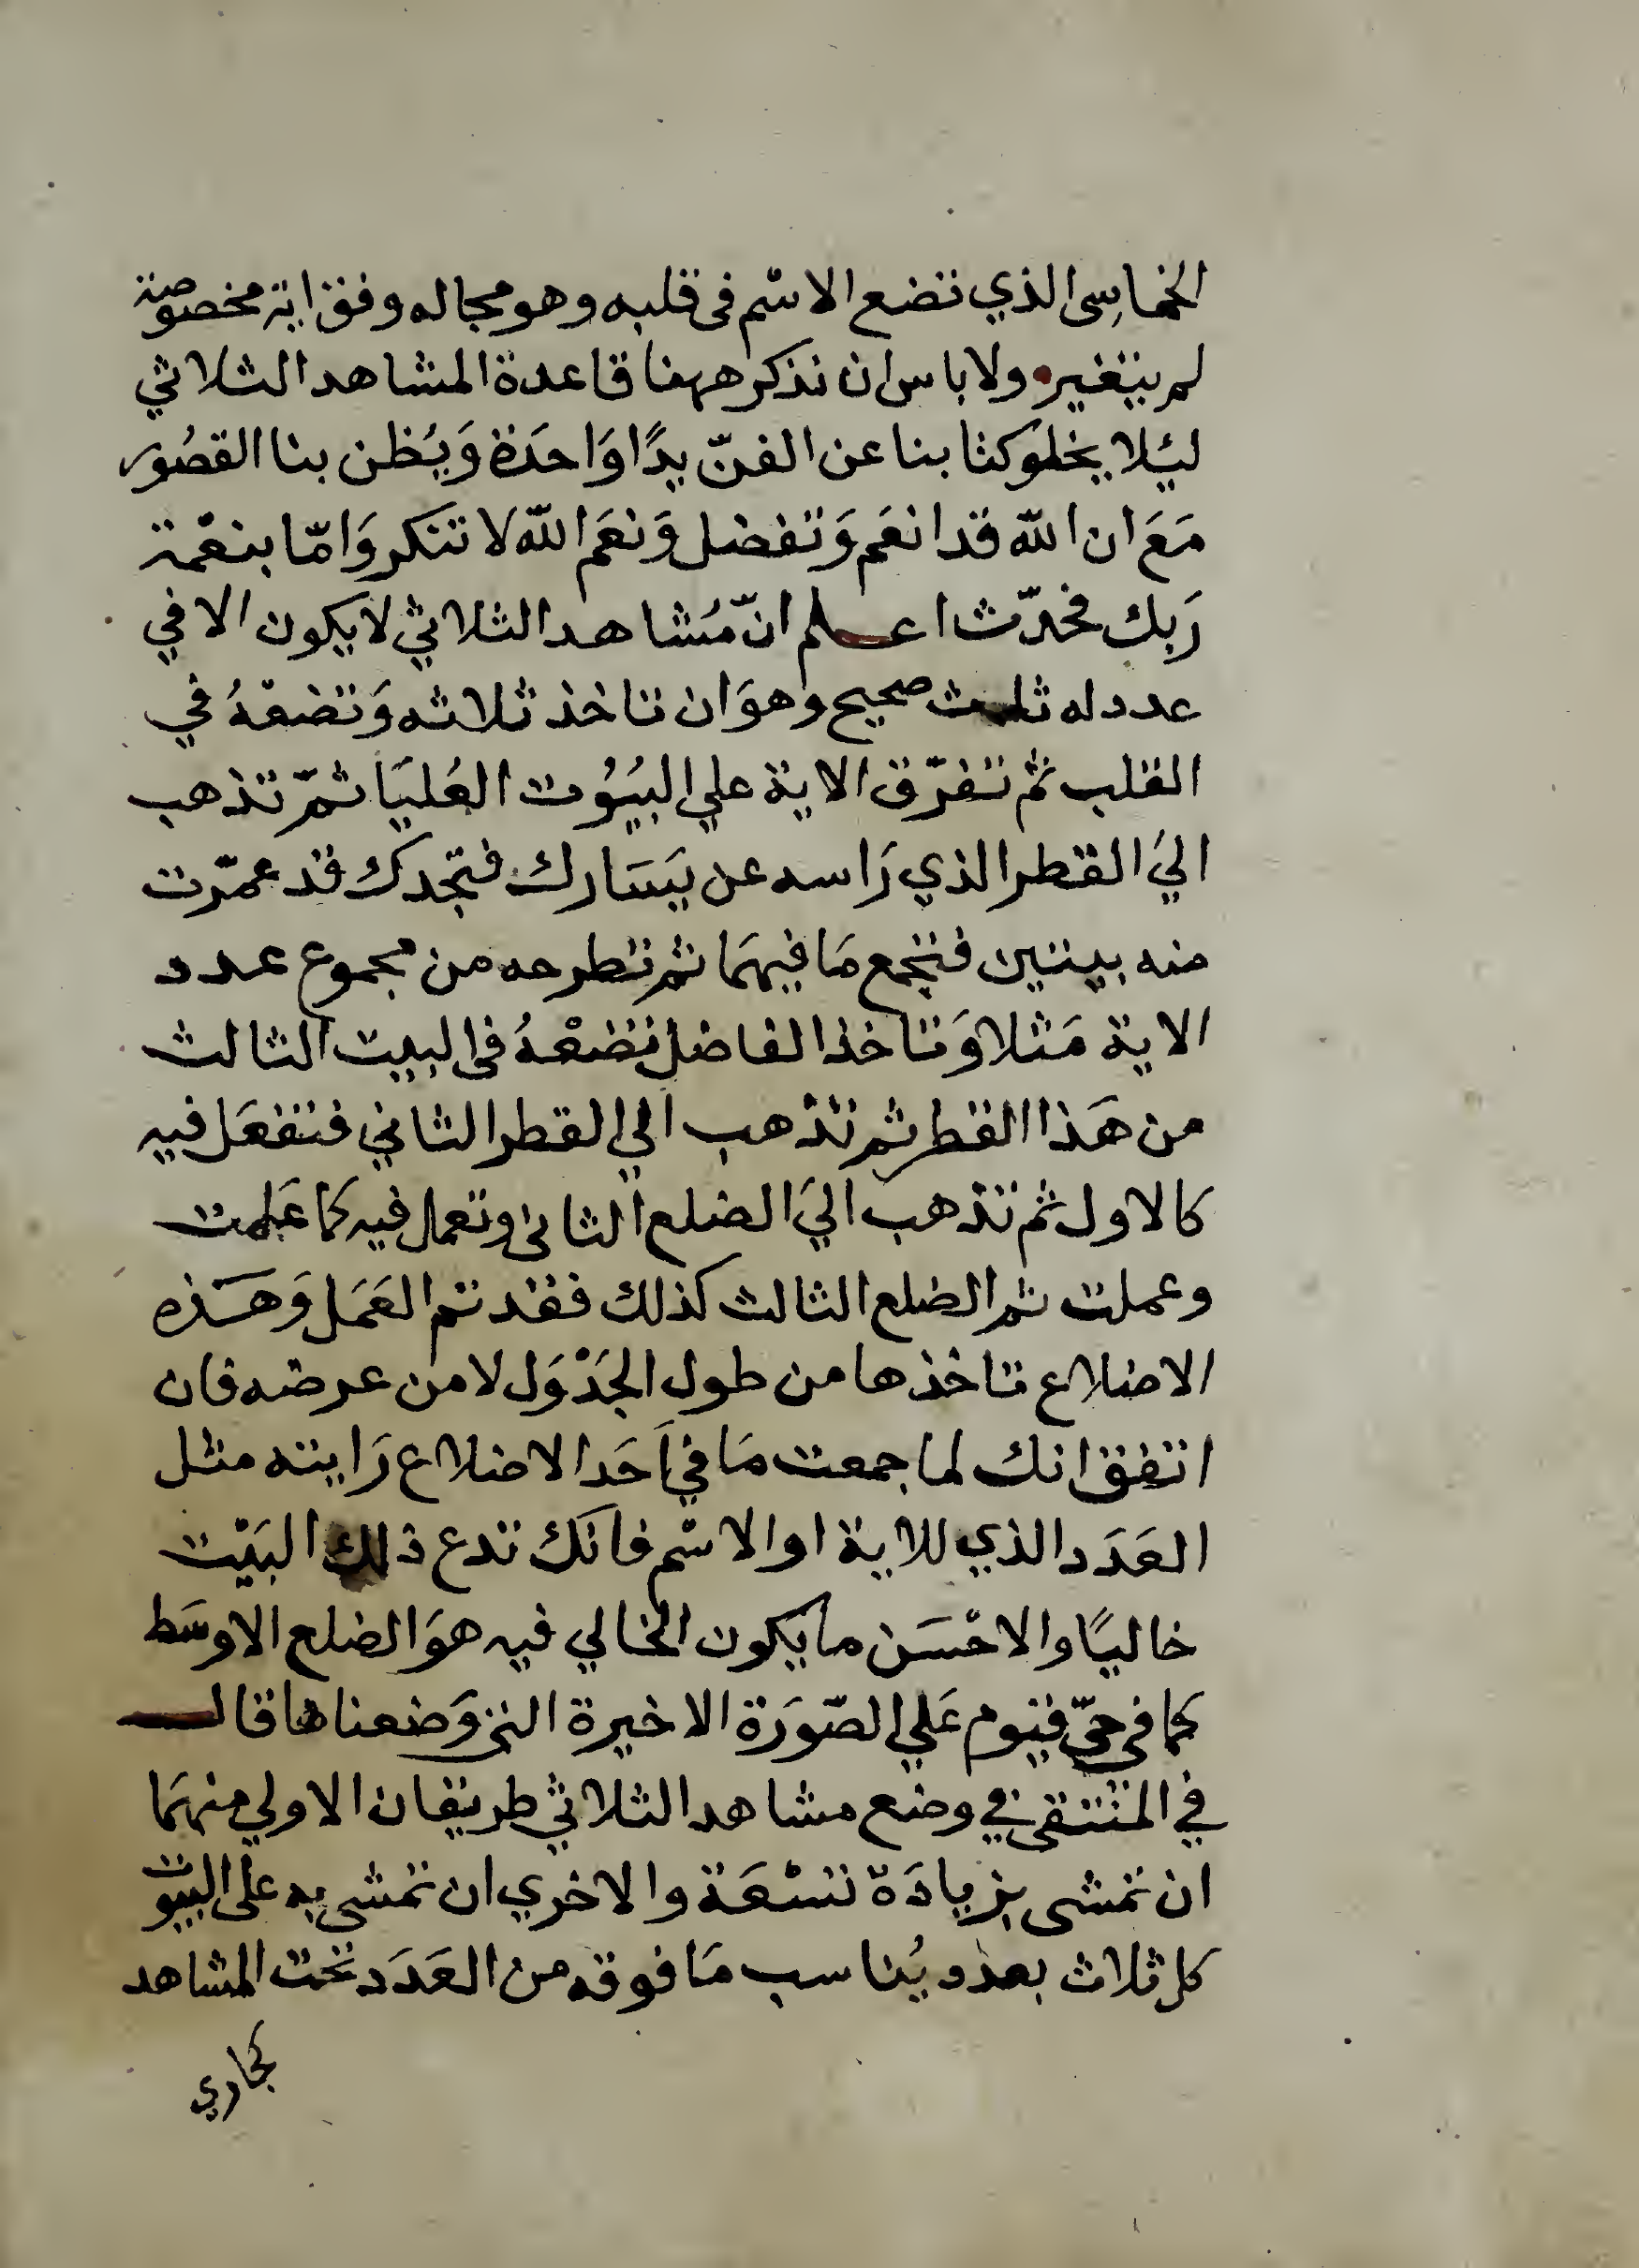 الخماسى الذي تضع الاسْم فى قلبه وهو مجاله وفق اية مخصوصة
لم يتغير ولا باس ان نذكر ههنا قاعدة المشاهد الثلاثي
ليُلا يخلو كتابنا عن الفنّ يدًا وَاحدَة وَيُظن بنا القصُور
مَعَ ان اللّه قد انعَم وَتفضل وَنعَم اللّه لا تنكر وَامّا بنعْمة
رَبك فحدّث اعلم انّ مُشاهد الثلاثي لا يكون الا في
عدد له ثلث صحيح وهوَ ان تاخذ ثلاثه وَتضعْهُ في
القلب ثم تفرّق الاية علي البيُوُت العُليَا ثمّ تذهب
اليَ القطر الذي رَاسه عن يَسَارك فتجدك قد عمّرت
منه بيتين فتجمع مَا فيهمَا ثم تطرحه من مجموع عدد
الاية مَثلا وَتاخذ الفاضل تضعْهُ فى البيت الثالث
من هَذا القطر ثم تذهب الي القطر الثاني فتفعَل فيه
كالاول ثم تذهب اليَ الضلع الثانى وتعمل فيه كما عَلمت
وعملت ثم الضلع الثالث كذلك فقد تم العَمَل وَهَذه
الاضلاع تاخذها من طول الجَدْوَل لا من عرضه فان
اتفق انك لما جمعت مَا في اَحَد الاضلاع رَايته مثل
العَدَد الذي للاية او الاسْم فانكَ تدع ذلك البَيْت
خاليًا والاحْسَن ما يكون الخالي فيه هوَ الضلع الاوسَط
كما فى حيّ قيوم عَلي الصّورَة الاخيرة التى وَضعناها قال
في المنتقى في وضع مشاهد الثلاثي طريقان الاولي منهمَا
ان تمشى بزيادَة تسْعَة والاخري ان تمشى به على البيوت
كل ثلاث بعدد يُناسب مَا فوقه من العَدَد تحت المشاهد
كجاري